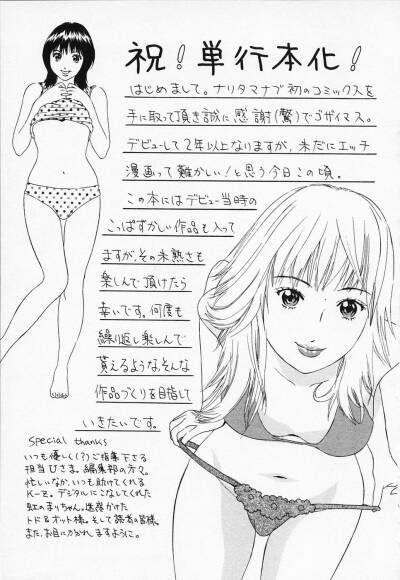 祝！単行本化！
はじめまして。ナリタマナブ初のコミックスを
手に取って頂き誠に感謝(驚)でゴザイマス。
デビューして2年以上なりますが、未だにエッチ
漫画って難かしい！と思う今日この頃。
この本にはデビュー当時の
こっぱずかしい作品も入って
ますが、その未熟さも
楽しんで頂けたら
幸いです。何度も
繰り返し楽しんで
貰えるような、そんな
作品づくりを目指して
いきたいです。
Special thanks
いつも優しく(?)ご指導下さる
担当ひさま。編集部の方々。
忙しいなか、いつも助けてくれる
K-ze。デジタルにこなしてくれた
虹のまりちゃん。迷惑かけた
トド＆オット様。そして読者の皆様。
また、お目にかかれますように。